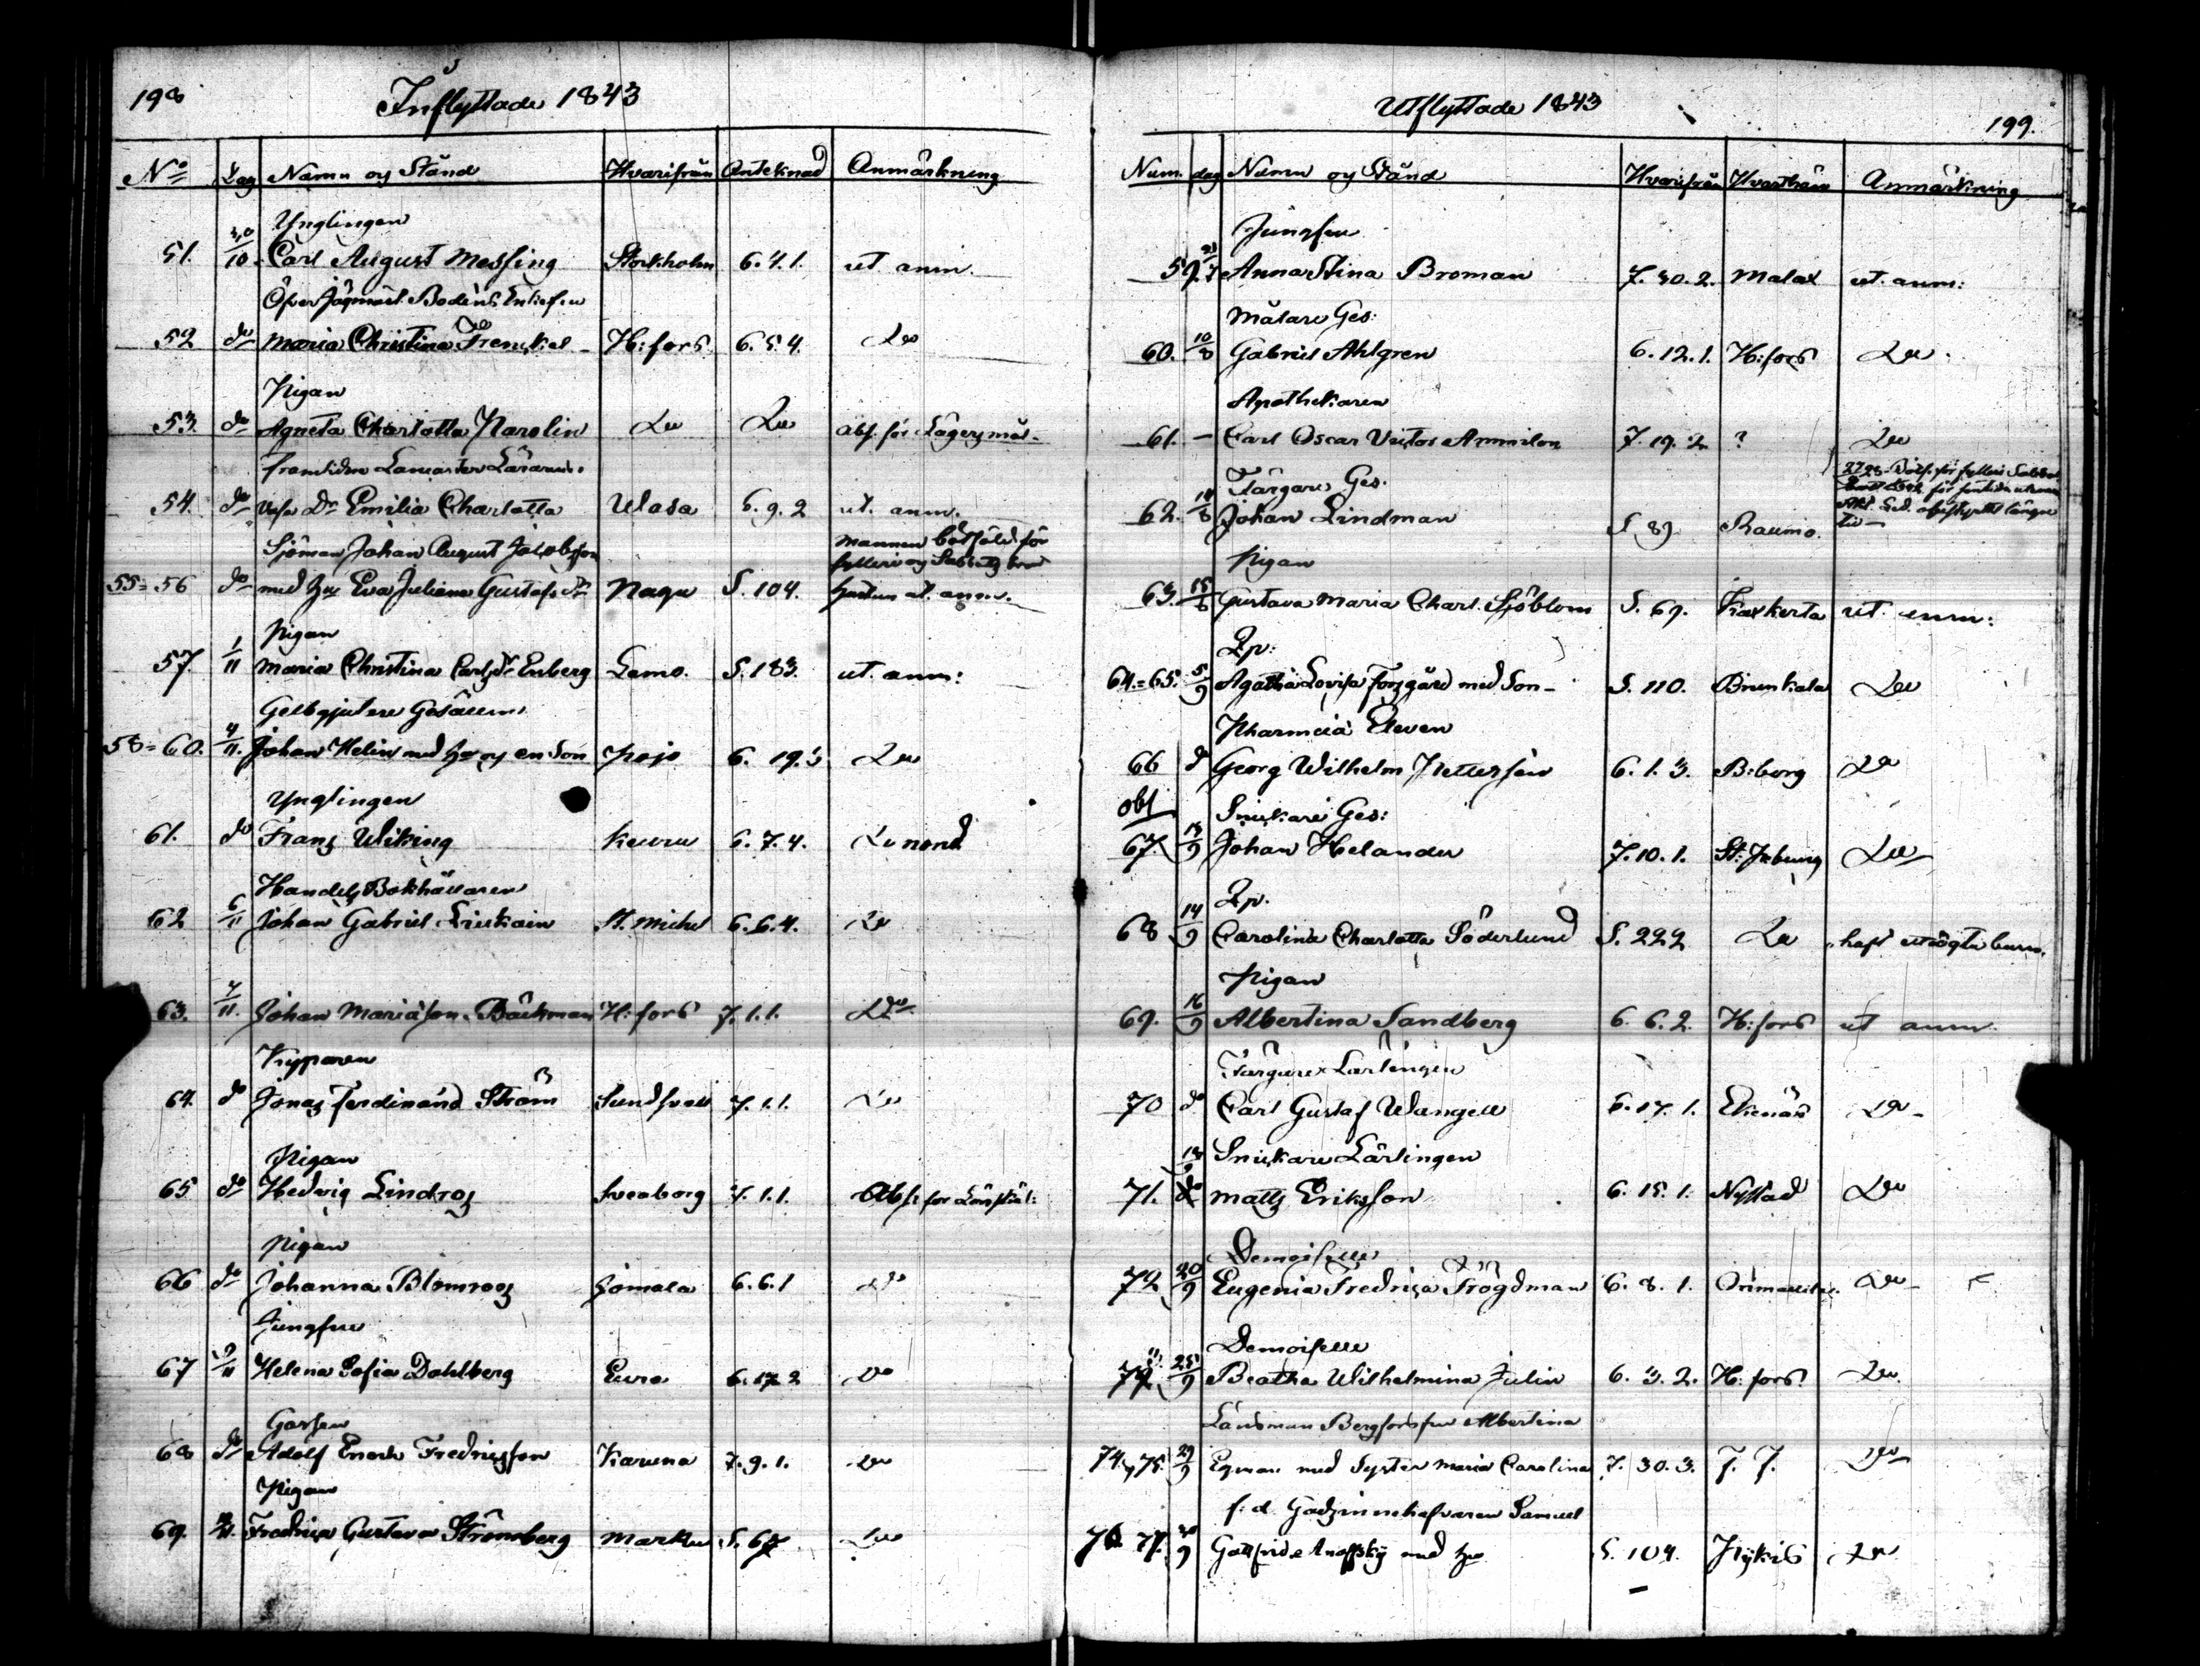 198
Inflyttade 1843
No Dag Namn og Stånd Hvarifrån Antecknad Anmärkning
Ynglingen
51. 30/10 Carl August Messing Stockholm 6.4.1. ut anm.
Öfver Jägmäst. Bodens Enkefru
52 do Maria Christina Frenckel H:fors 6.5.4. Do
Pigan
53. do Agneta Charlotta Parolin Do Do abs. för Lägersmål.
framlidne
54. do Dr Emilia Charlotta Wasa 6.9.2 ut. anm.
Sjöman Johan August Jakobsson Mannen
fylleri og
55=56 do med hu Eva Juliana Gustafs dr Nagu S. 104. hustrun ut. anm.
Pigan
57. 1/11 Maria Christina Carlsdr Enberg Lemo. S.183. ut. anm:
Gelbgjutare Gesällen
58=60. 4/11. Johan Helin med hu og en Son Pojo 6. 19.3 Do
Ynglingen
61. do Frans Wiking Keuru 6.7.4. Do
Handels Bokhållaren
62 6/11 Johan Gabriel St. Michel 6.6.4. Do
63. 7/11. Johan Mariæson Bäckman H:fors 7.1.1. Do
Kyparen
64. do Jonas Ferdinand Ström Sundsvall 7.1.1. Do
Pigan
65 do Hedvig Lindros Sveaborg 7.1.1.
Pigan
66 do Johanna Blomroos Jomala 6.6.1 Do
Jungfru
67 9/11 Helena Sofia Dahlberg Eura 6.17.2 Do
Gossen
68 do Adolf Enoch Fredricsson Karuna 7.9.1. Do
Pigan
69. Fredrica Gustava Strömberg Marku S. 67 Do
Utflyttade 1843
199.
Num. dag Namn og Stånd Hvarifrån Hvarthän Anmärkning
Jungfru
59. Anna Stina Broman 7.30.2. Malax ut. anm:
Målare Ges:
60. 10/8 Gabriel Ahlgren 6.12.1. H:fors Do
Apothekaren
61. – Carl Oscar 7.19.2 ? Do
Färgare Ges.
62. Johan Lindman S 89. Raumo.
Pigan
63. 15/8 Gustava Maria Charl. Sjöblom S. 69. Kaxkerta ut. anm:
Qp:
64=65. 5/9 Agatha Lovisa Forsgård med Son – S. 110. Brunkala Do
Pharmcia Eleven
66 do Georg Wilhelm Pettersén 6.1.3. B:borg Do
obs Snickare Ges:
67. 13/9 Johan Helander 7.10.1. Do
Qp.
68 14/9 Carolina Charlotta Söderlund S. 222 Do haft oäkta barn.
Pigan
69. 16/9 Albertina Sandberg 6.6.2. H:fors ut anm.
Färgare Lärlingen
70 do Carl Gustaf Wangell 6.17.1. Ekenäs Do
Snickare Lärlingen
71. 18/9 Matts Eriksson 6.15.1. Nystad Do
Demoiselle
72 20/9 Eugenia Fredrica Frögdman 6.8.1. Orimattila. Do
Demoiselle
73. 25/9 Beatha Wilhelmina Julin 6.3.2. H:fors. Do
Länsman Bergfors fru Albertina
74, 75. 29/9 Eqman med Syster Maria Carolina 7.30.3. F. F. Do
f:d. Gästninnehafvaren Samuel
76. 77. 30/9 Gottfrid med hu S. 104. Pykis Do